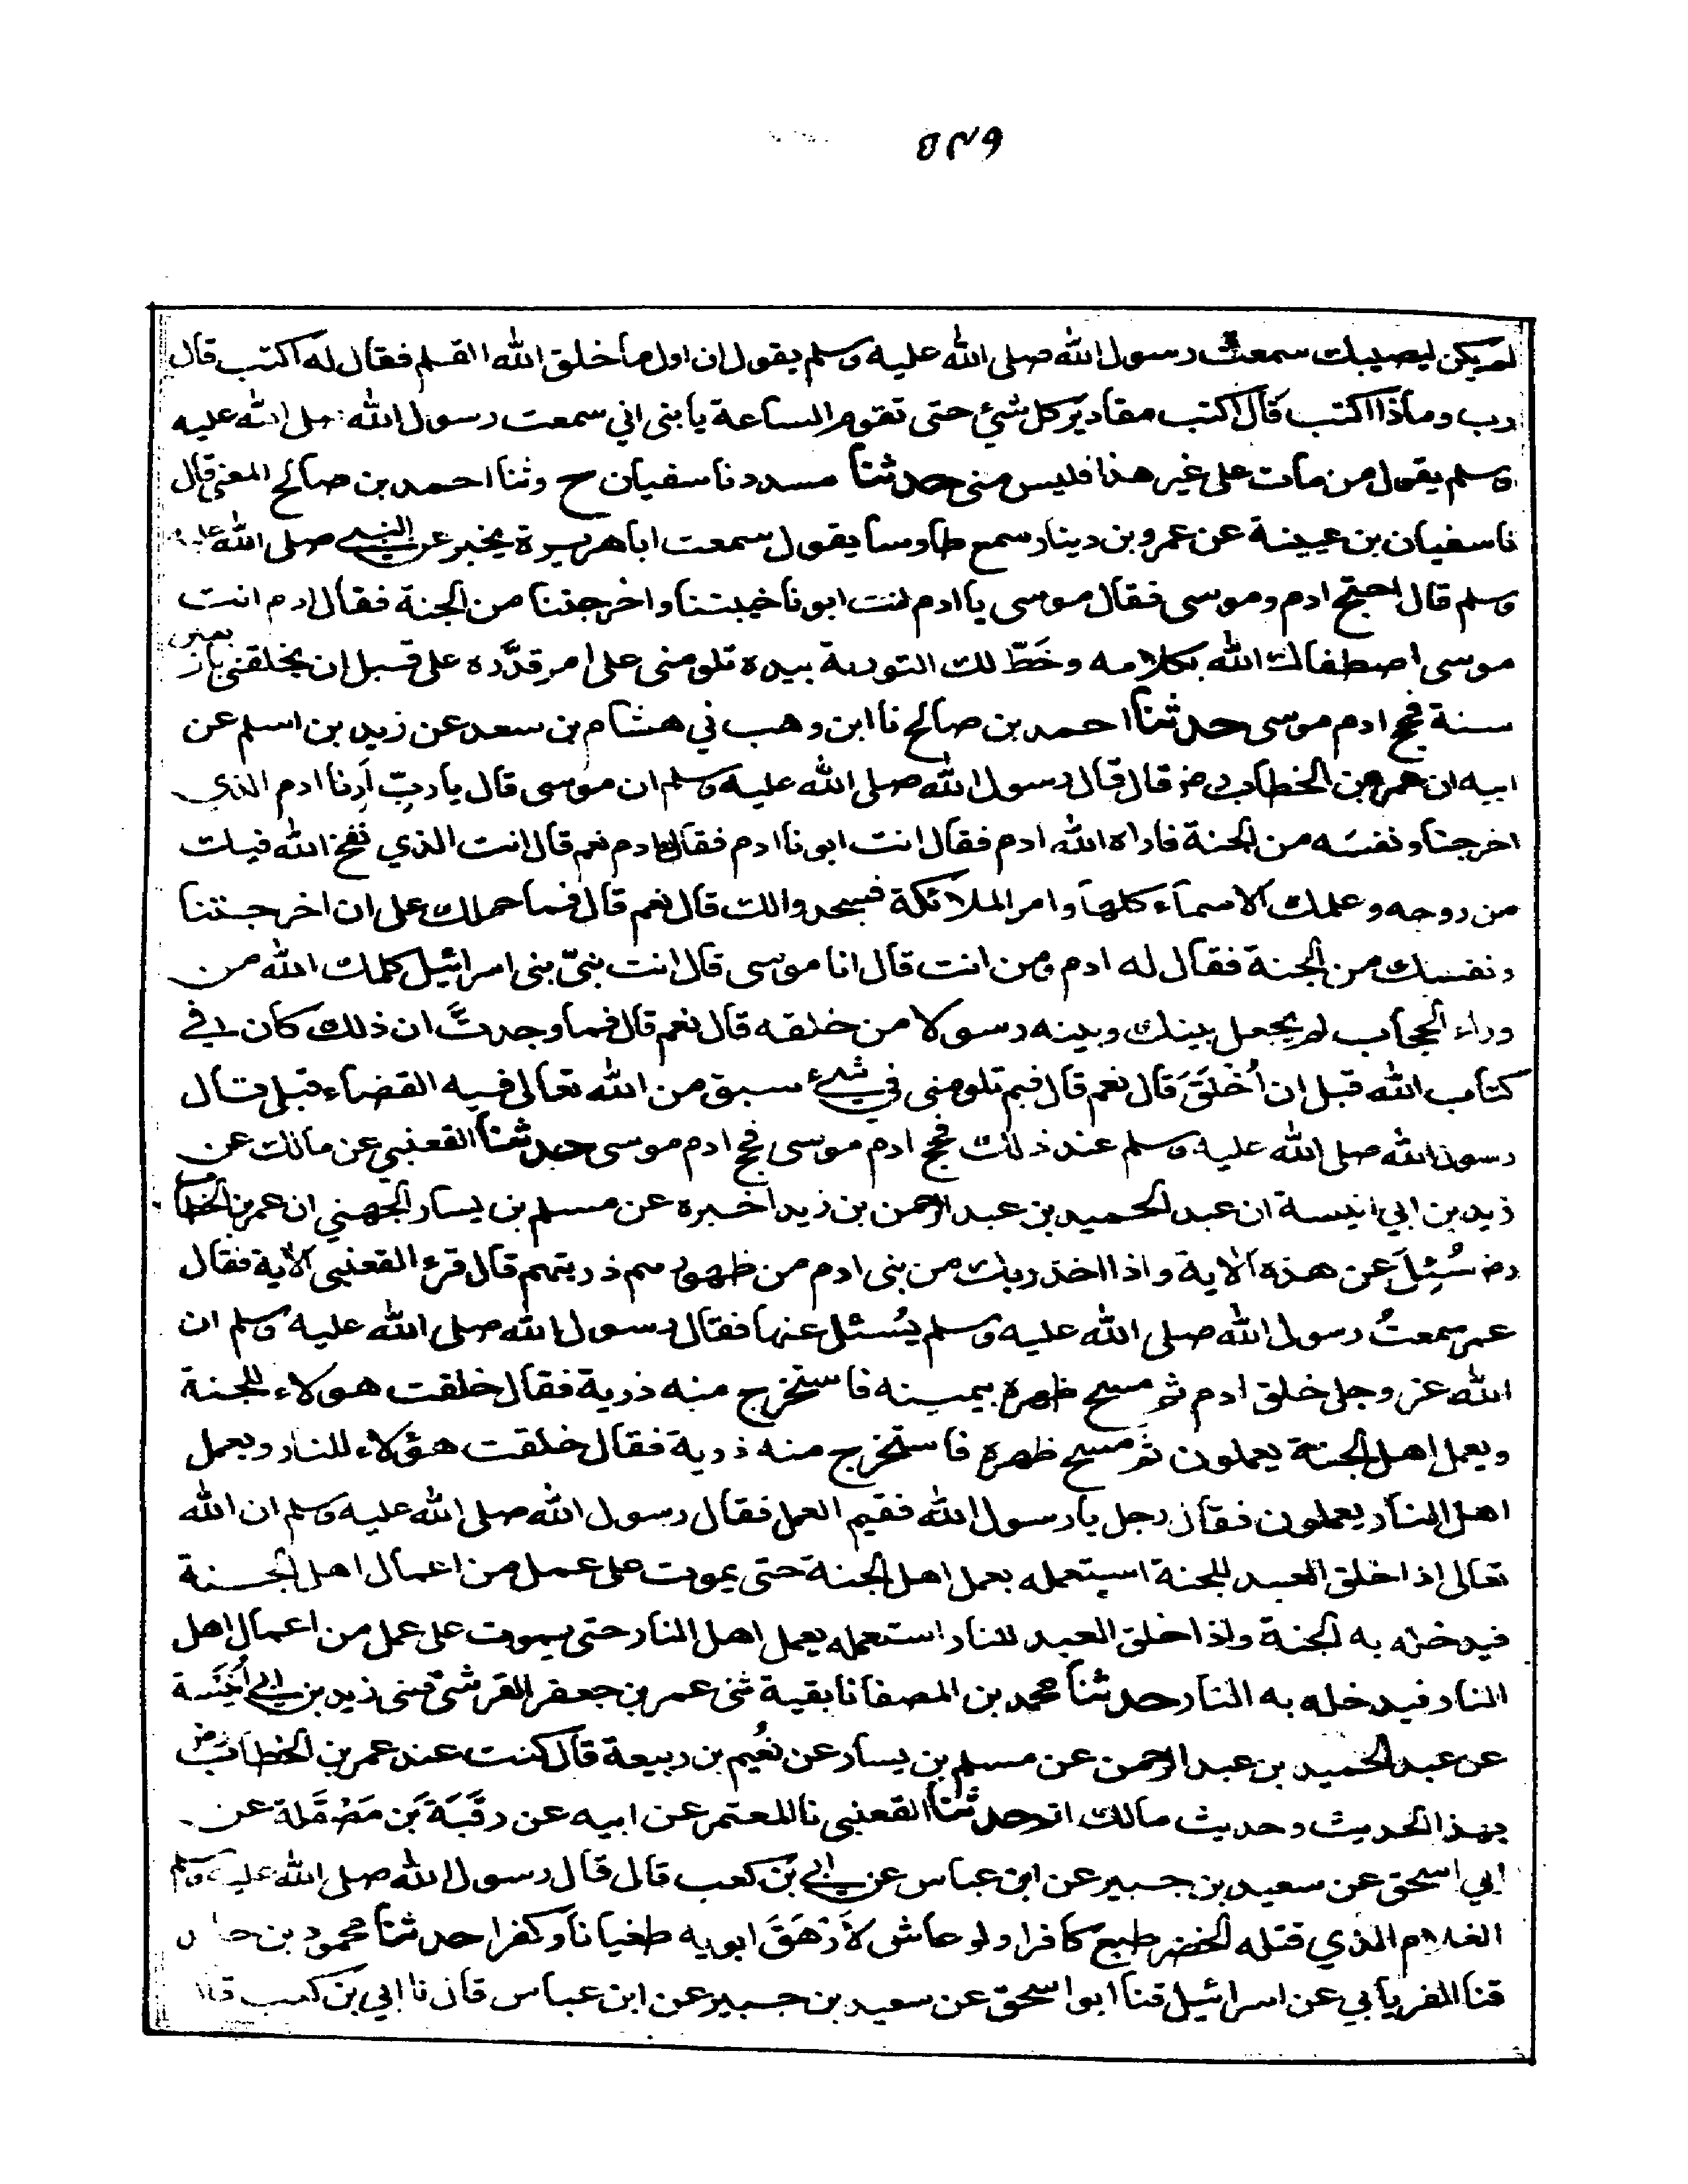 ٥٣٩
لم يكن ليصيبك سمعت رسول الله صلى الله عليه وسلم يقول ان اول ما خلق الله القلم فقال له اكتب قال
رب وماذا اكتب قال اكتب مقادير كل شئ حتى تقوم الساعة يا بنى اني سمعت رسول الله صلى الله عليه
وسلم يقول من مات على غير هذا فليس منى حدثنا مسدد نا سفيان ح وثنا احمد بن صالح المعنى قال
نا سفيان بن عيينة عن عمرو بن دينار سمع طاوسا يقول سمعت ابا هريرة يخبر عن النبي صلى الله عليه
وسلم قال احتج ادم وموسى فقال موسى يا ادم انت ابونا خيبتنا واخرجتنا من الجنة فقال ادم انت
موسى اصطفاك الله بكلامه وخَطّ لك التورىة بيده تلومنى على امر قدَّره على قبل ان يخلقنى باربعين
سنة فحج ادم موسى حدثنا احمد بن صالح نا ابن وهب ني هشام بن سعد عن زيد بن اسلم عن
ابيه ان عمر بن الخطاب رضـ قال قال رسول الله صلى الله عليه وسلم ان موسى قال يا ربِّ اَرِنا ادم الذي
اخرجنا ونفسَه من الجنة فاراه الله ادم فقال انت ابونا ادم فقال له ادم نعم قال انت الذي نفخ الله فيك
من روحه وعلمك الاسماء كلها وامر الملائكة فسجدوا لك قال نعم قال فما حملك على ان اخرجتنا
ونفسك من الجنة فقال له ادم ومن انت قال انا موسى قال انت نبىّ بنى اسرائيل كلمك الله من
وراء الحجاب لم يجعل بينك وبينه رسولا من خلقه قال نعم قال فما وجدتَّ ان ذلك كان في
كتاب الله قبل ان اُخْلَقَ قال نعم قال فبم تلومنى في شيء سبق من الله تعالى فيه القضاء قبلى قال
رسول الله صلى الله عليه وسلم عند ذلك فحج ادم موسى فحج ادم موسى حدثنا القعنبي عن مالك عن
زيد بن ابي انيسة ان عبد الحميد بن عبد الرحمن بن زيد اخبره عن مسلم بن يسار الجهني ان عمر بن الخطاب
رضـ سُئِلَ عن هذه الاية واذا اخذ ربك من بنى ادم من ظهورهم ذريتهم قال قرء القعنبى الاية فقال
عمر سمعتُ رسول الله صلى الله عليه وسلم يُسئل عنها فقال رسول الله صلى الله عليه وسلم ان
الله عز وجل خلق ادم ثم مسح ظهره بيمينه فاستخرج منه ذرية فقال خلقت هولاء للجنة
وبعمل اهل الجنة يعملون ثم مسح ظهره فاستخرج منه ذرية فقال خلقت هؤلاء للنار وبعمل
اهل النار يعملون فقال رجل يا رسول الله ففيم العمل فقال رسول الله صلى الله عليه وسلم ان الله
تعالى اذا خلق العبد للجنة استعمله بعمل اهل الجنة حتى يموت على عمل من اعمال اهل الجنة
فيدخله به الجنة واذا خلق العبد للنار استعمله بعمل اهل النار حتى يموت على عمل من اعمال اهل
النار فيدخله به النار حدثنا محمد بن المصفا نا بقية ثنى عمر بن جعفر القرشى ثنى زيد بن ابي اُنَيْسة
عن عبد الحميد بن عبد الرحمن عن مسلم بن يسار عن نُعَيم بن ربيعة قال كنت عند عمر بن الخطاب رضـ
بهذا الحديث وحديث مالك اتم حدثنا القعنبى نا المعتمر عن ابيه عن رقَبَةَ بن مَصْقَلة عن
ابي اسحق عن سعيد بن جبير عن ابن عباس عن ابي بن كعب قال قال رسول الله صلى الله عليه وسلم
الغلام الذي قتله الخضر طبع كافرا ولو عاش لاَرْهَقَ ابويه طغيانا وكفرا حدثنا محمود بن خالد
قثنا الفريابي عن اسرائيل قثنا ابو اسحق عن سعيد بن جبير عن ابن عباس قال نا ابي بن كعب قال